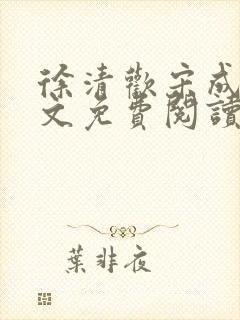 徐清歡宋成
文免費閱讀
葉非夜